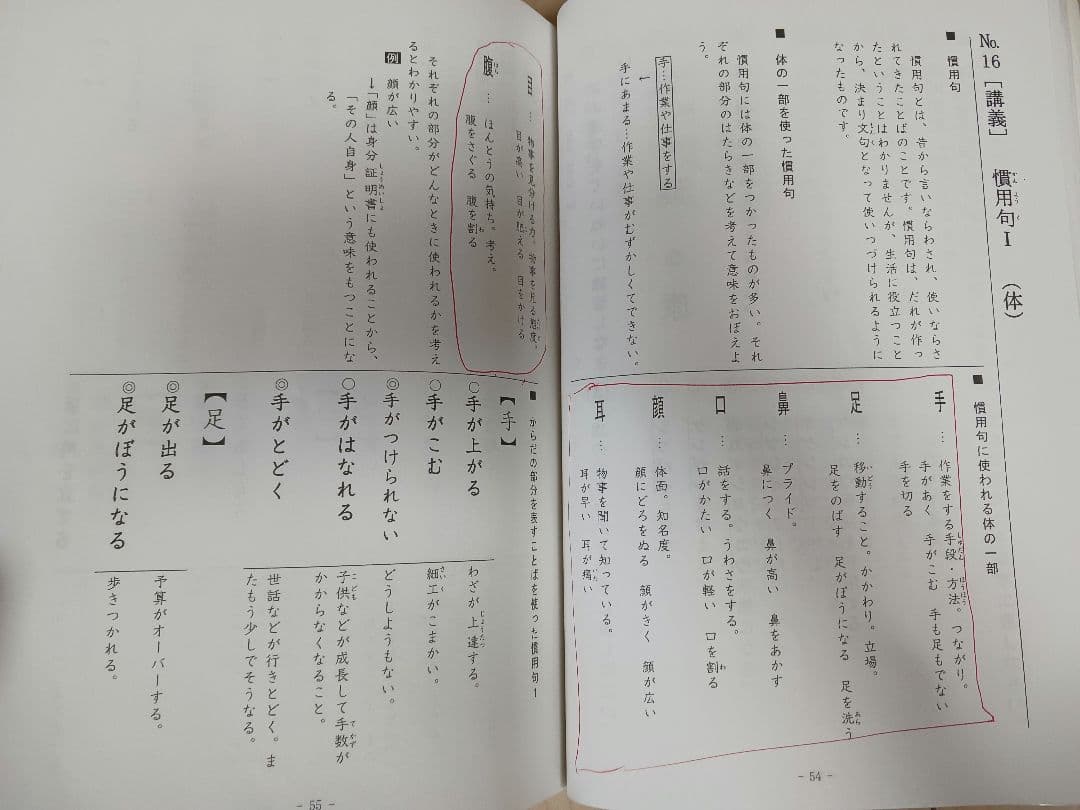 No.16 [講義] 慣用句Ⅰ (体)
■ 慣用句
慣用句とは、昔から言いならわされ、使いならさ
れてきたことばのことです。慣用句は、だれが作っ
たということはわかりませんが、生活に役立つこと
から、決まり文句となって使いつづけられるように
なったものです。
■ 体の一部を使った慣用句
慣用句には体の一部をつかったものが多い。それ
ぞれの部分のはたらきなどを考えて意味をおぼえよ
う。
手…作業や仕事をする
↓
手にあまる…作業や仕事がむずかしくてできない。
■ 慣用句に使われる体の一部
手 … 作業をする手段・方法。つながり。
手があく 手がこむ 手も足もでない
手を切る
足 … 移動すること。かかわり。立場。
足をのばす 足がぼうになる 足を洗う
鼻 … プライド。
鼻につく 鼻が高い 鼻をあかす
口 … 話をする。うわさをする。
口がかたい 口が軽い 口を割る
顔 … 体面。知名度。
顔にどろをぬる 顔がきく 顔が広い
耳 … 物事を聞いて知っている。
耳が早い 耳が痛い
- 54 -
目 … 物事を見分ける力。物事を見る態度。
目が高い 目が肥える 目をかける
腹 … ほんとうの気持ち。考え。
腹をさぐる 腹を割る
それぞれの部分がどんなときに使われるかを考え
るとわかりやすい。
例 顔が広い
→「顔」は身分証明書にも使われることから、
「その人自身」という意味をもつことにな
る。
■ からだの部分を表すことばを使った慣用句1
【手】
○手が上がる わざが上達する。
○手がこむ 細工がこまかい。
◎手がつけられない どうしようもない。
○手がはなれる 子供などが成長して手数が
かからなくなること。
◎手がとどく 世話などが行きとどく。ま
たもう少しでそうなる。
【足】
◎足が出る 予算がオーバーする。
◎足がぼうになる 歩きつかれる。
- 55 -